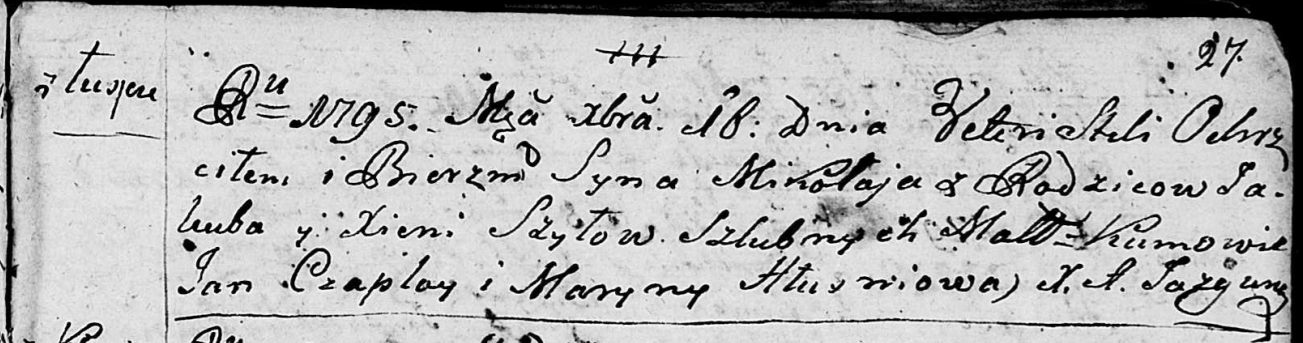 27
z Łuspu
Ru 1795. Mca Xbra. 18: Dnia Veteri Stili Ochrz
ciłem i Bierzmo Syna Mikołaja z Rodzicow Ja-
kuba y Xieni Szyłow Szlubnych Małż Kumowie
Jan Czaplay i Maryny Hłusniowa) X. A.